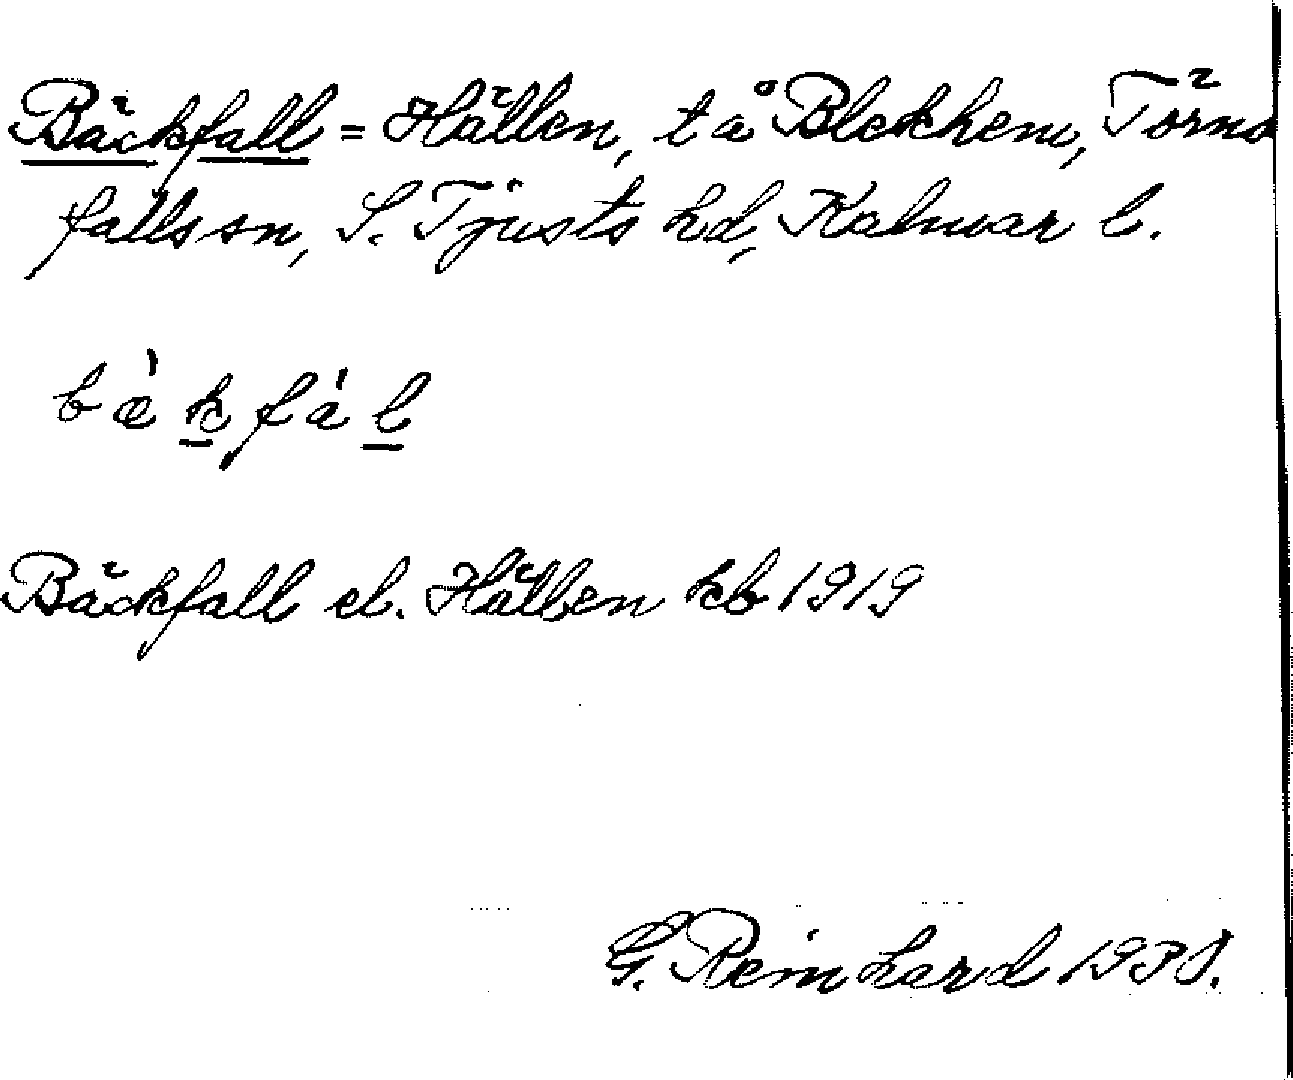 Bäckfall = Hällen, t å Blekhem, Törns
falls sn, S. Tjusts hd, Kalmar l.
bæ̀k̲fàl̲
Bäckfall el. Hällen kb 1919
G. Reinhard 1930.